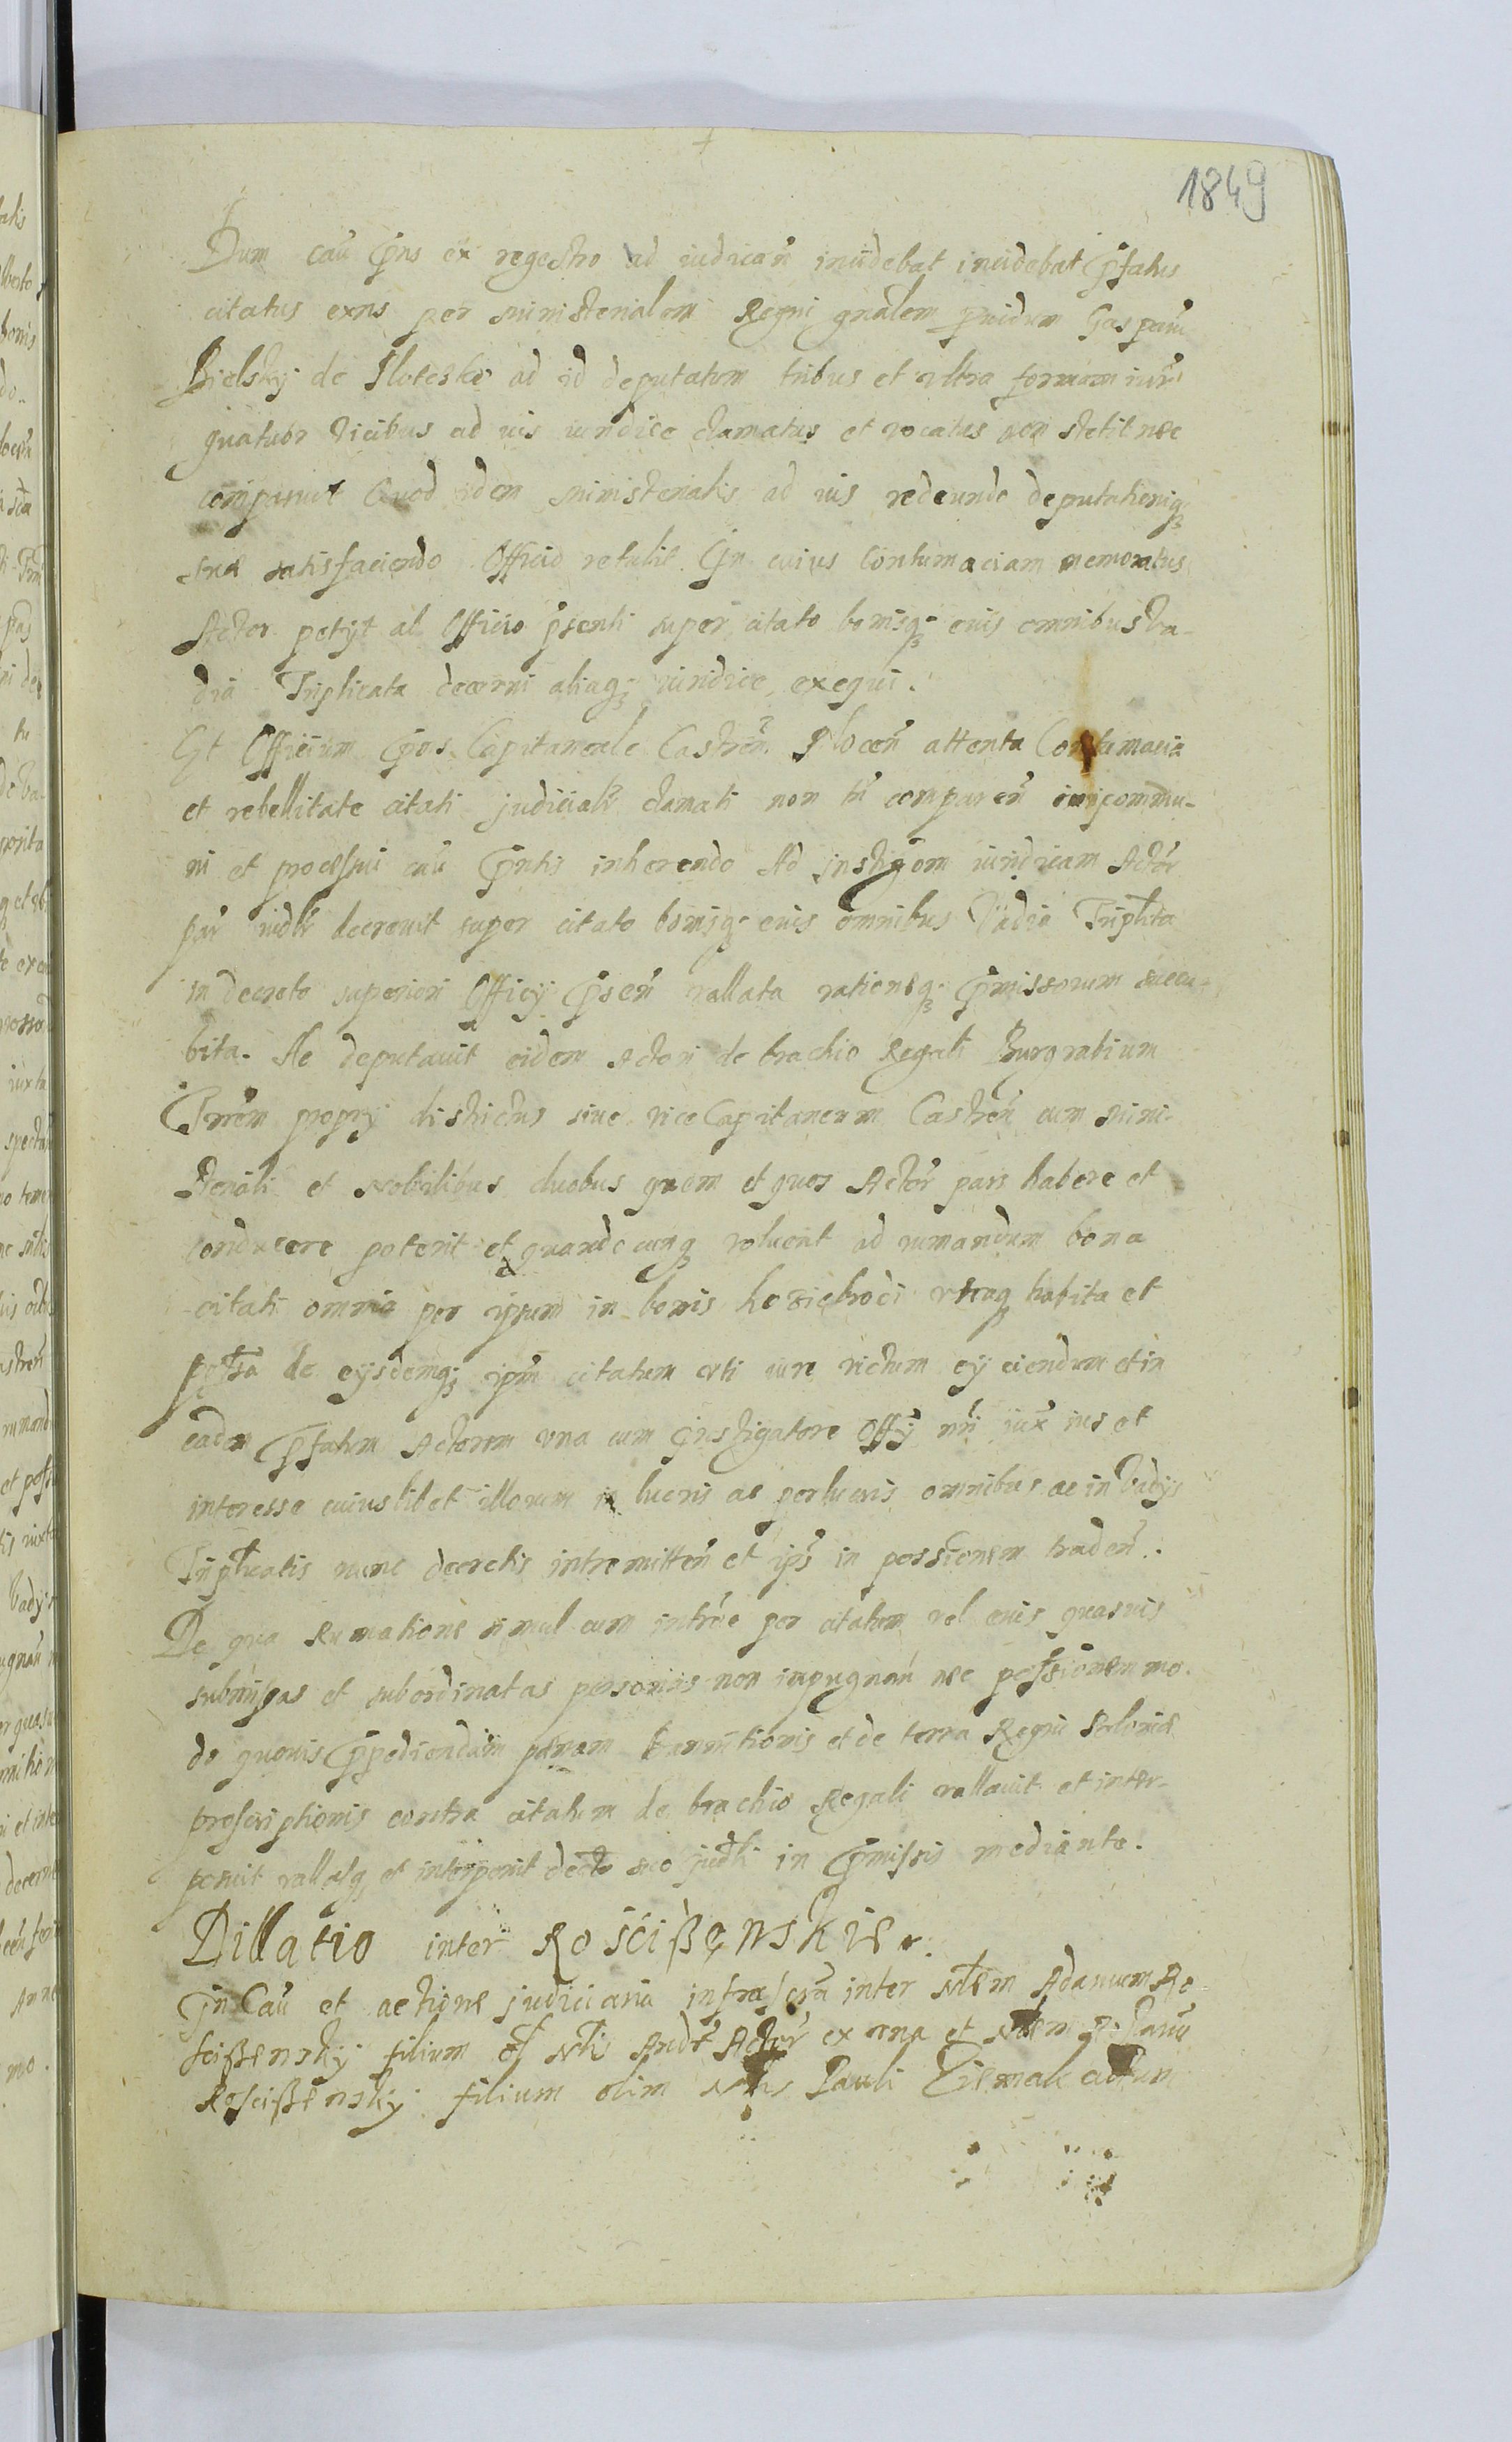 1849
Dum cau͂ p͂ns ex regestro ad iudican͂ incidebat incidebat p͂fatus
citatus exns per ministerialem Regni gn͂alem providum Casparu͂
Bielsky de Ploteski ad id deputatum tribus et ultra formam iur͂
quatuor vicibus ad ius iuridice clamatus et vocatus non stetit nec
comparuit Quod idem ministerialis ad ius redeundo deputationiq;
suæ satisfaciendo Officio retulit In cuius Contumaciam memoratus
Actor petyt ab Officio p͂senti super citato bonisq; euis omnibus Va-
dia Triplicata decerni aliaq; iuridice exequi.
Et Officium p͂ns Capitaneale Castren͂ Plocen͂ attenta Contumacia
et rebellitate citati judiciali͂ clamati non tn͂ comparen͂ iuri commu-
ni et processui cau͂ p͂ntis inherendo Ad instig͂om iuridicam Actor͂
par͂ iudli͂ decrevit super citato bonisq; euis omnibus Vadia Triplta
in decreto superiori Officy p͂sen͂ vallata rationeq; p͂missorum succu-
bita. Ac deputavit eidem Actori de brachio Regali Burgrabium
Trr͂em propry districtus sive vice Capitaneum Castren͂ cum mini-
steriali et Nobilibus duobus quem et quos Actor͂ pars habere et
conducere poterit et quandocunq; voluerit ad rumandum bona
citati omnia per ipsum in bonis Koziebrodi utraq; habita et
possa de eysdemq; ipm͂ citatum uti iure victum eyciendum et in
eadem p͂fatum Actorem una cum instigatore Offy nr͂i iux͂ ius et
interesse cuiuslibet illorum in lucris ac perlucris omnibus ac in Vadys
Triplicatis nunc decretis intromitten͂ et ips͂ in possionem traden͂.
De qua Rumatione simul cum intr͂ôe per citatum vel euis quasvis
submissas et subordinatas personas non inpugnan͂ nec possionem mo-
do quovis p͂pediendum pænam Bannitionis et de terra Regni Poloniæ
proscriptionis contra citatum de brachio Regali vallavit et inter-
posuit vallatq; et interponit decto suo judli in p͂missis mediante.
Dillatio inter Rościßęnskie.
In Cau͂ et actione judiciaria infrascra͂ inter Nblem Adamum Ro-
scißensky filium ol͂ Nblis Andr͂ Actor͂ ex una et Nblem Pau͂
Roscißensky filium olim Nblis Pauli Ziemak citatum